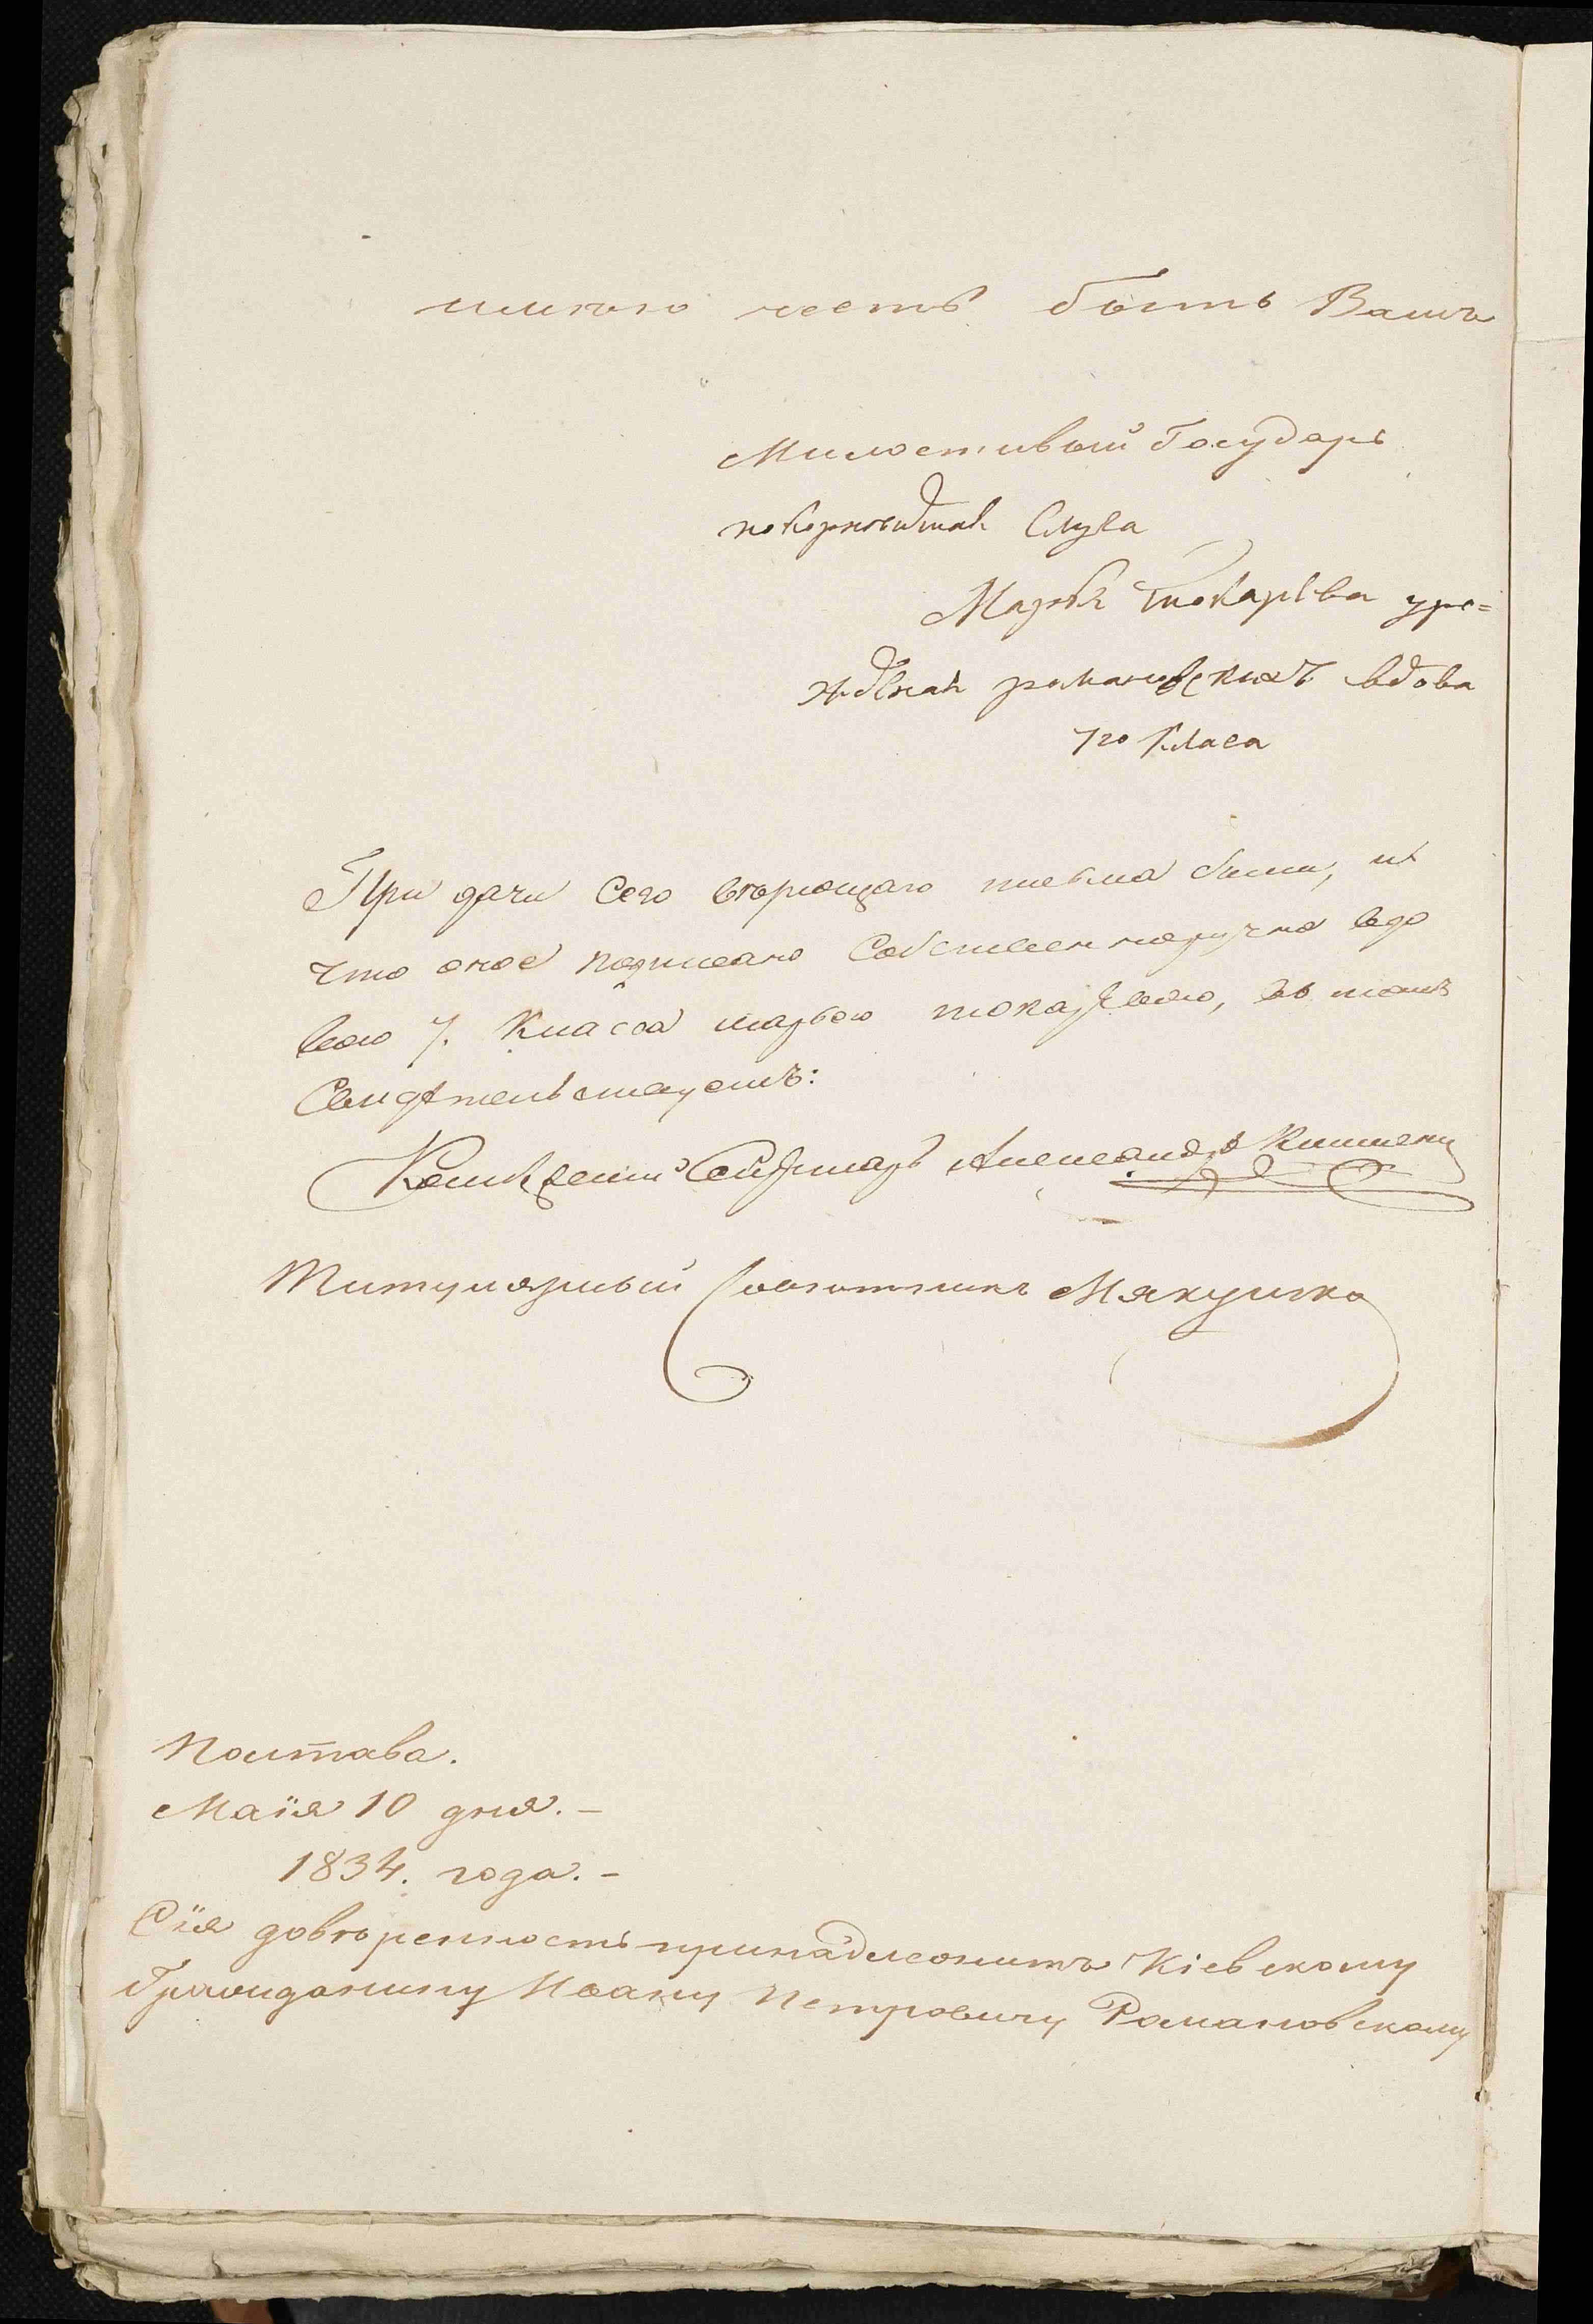 имѣю честь быть Вашъ
Милостивый Государь
покорнѣйшая Слуга
Марья Токарѣва уро=
жденая романовскихъ вдова
7го Класа
При дачи Сего вѣрющаго писма былъ, и
что оное подписано Собственноручно вдо
вою 7. Класса марьею токарѣвою, въ томъ
Свидѣтельствуетъ:
Секретарь Александръ
Титулярный Совѣтникъ Мякушко
Полтава.
Маія 10 дня.-
1834. года.-
Сія довѣренность принадлежитъ Кіевскому
Гражданину Ивану Петровичу Романовскому